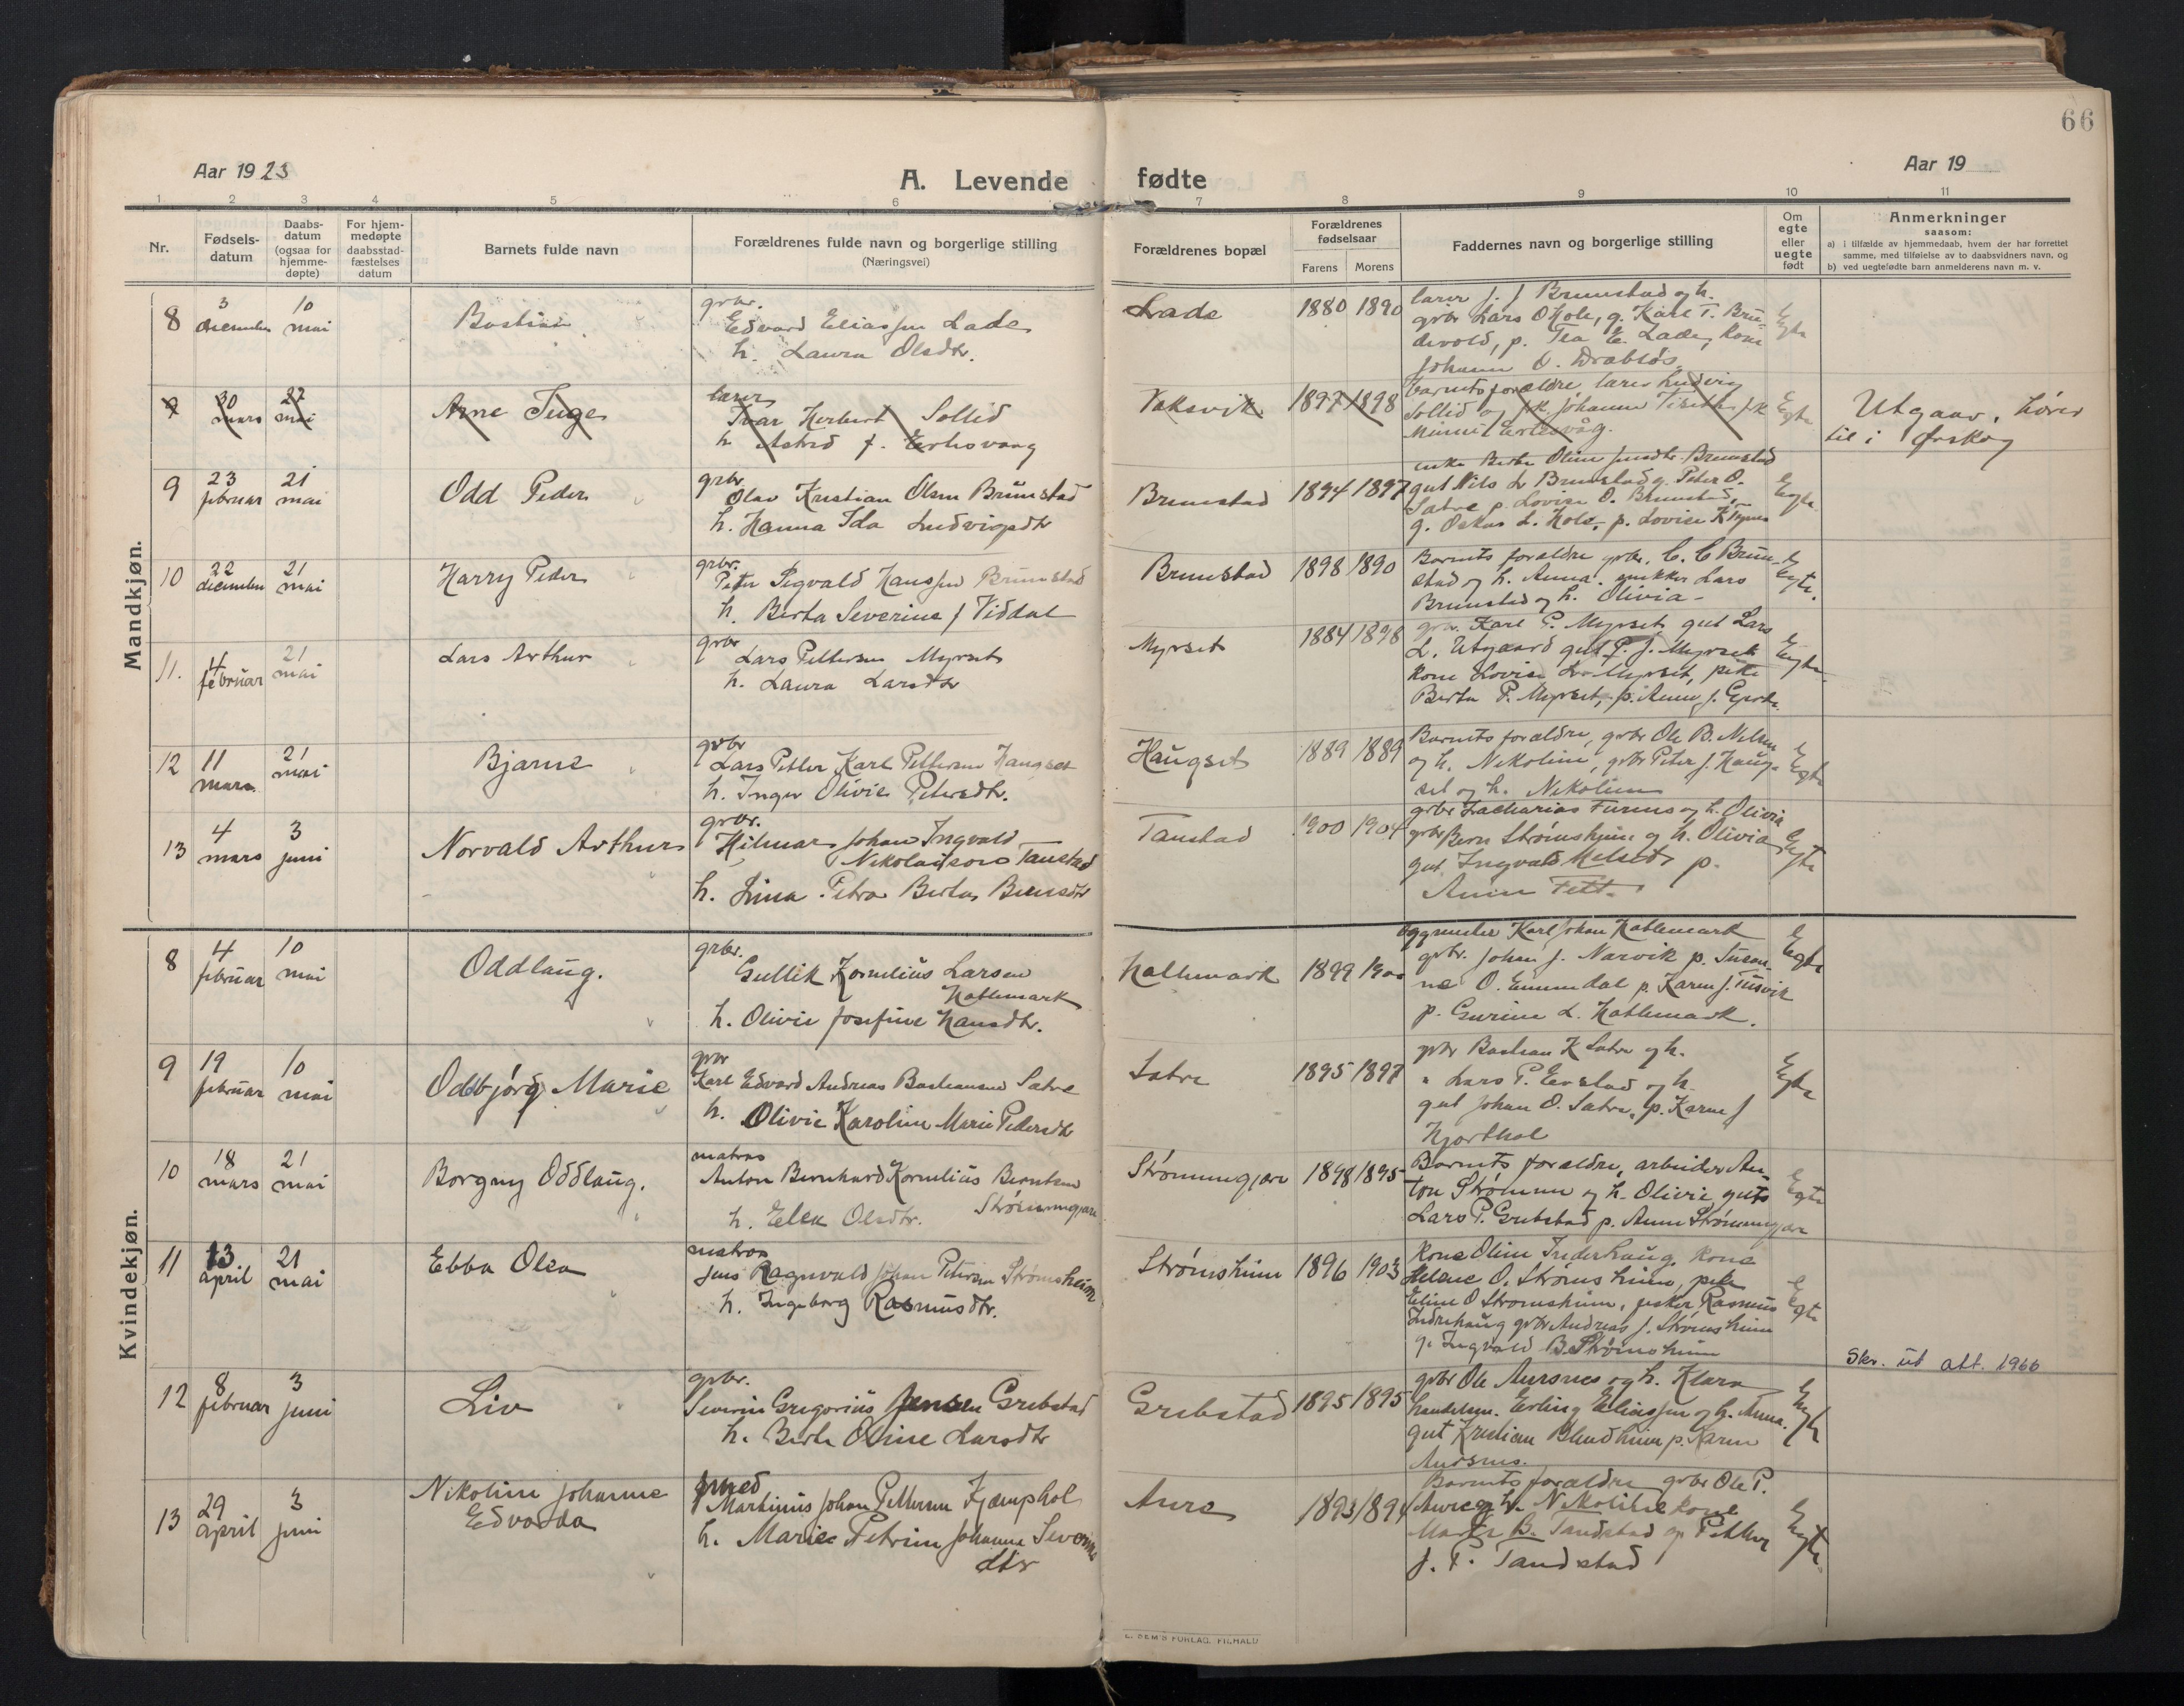 66
Aar 1923
A. Levende fødte
Aar 19
1 2 3 4 5 6 7 8 9 10 11
Nr.
Fødsels-
datum
Daabs-
datum
(ogsaa for
hjemme-
døpte)
For hjem-
medøpte
daabsstad-
fæstelses
datum
Barnets fulde navn
Forældrenes fulde navn og borgerlige stilling
(Næringsvei)
Forældrenes bopæl
Forældrenes
fødselsaar
Farens Morens
Faddernes navn og borgerlige stilling
Om
egte
eller
uegte
født
Anmerkninger
saasom:
a) i tilfælde av hjemmedaab, hvem der har forrettet
samme, med tilføielse av to daabsvidners navn, og
b) ved uegtefødte barn anmelderens navn m. v.
Mandkjøn.
8
3 december
10 mai
Bastian
grbr.
Edvard Eliassen Lade
h. Laura Olsdtr.
Lade
1880 1890
lærer J. J Brunstad og h.
grbr Lars O Hole, g. Karl T. Bru-
devold, p. Tea E. Lade, kone
Johanne O. Drabløs
Egte
9
30 mars
27 mai
Arne Inge
lærer
Ivar Herbert Sollid
h Astrid f. Ertesvaag
Vaksvik
1897 1898
barnets forældre lærer Ludvig
Sollid og frk. Johanne frk
Ertesvåg.
Egte
Utgaar, hører
til i Ørskog
9
23 februar
21 mai
Odd Peder
grbr
Olav Kristian Olsen Brunstad
h. Hanna Ida Ludvigsdtr
Brunstad
1894 1897
enke Berte Oline Brunstad
gut Nils L. Brunstad g. Peter O.
Satre p. Lovise O. Brunstad,
g. Oskar L. Hole, p. Lovise K
Egte
10
22 december
21 mai
Harry Peder
grbr.
Peter Sigvald Hanssen Brunstad
h. Berta Severine J Viddal
Brunstad
1898 1890
Barnets forældre grbr. C. C Brun-
stad og h. Anna. snikker Lars
Brunstad og h. Olivia
Egte.
11.
4 februar
21 mai
Lars Arthur
grbr
Lars Pettersen Myrset
h. Laura Larsdtr
Myrset
1884 1898
grbr. Karl P. Myrset, gut Lars
L. Utgaard gut P. J. Myrset
kone Lovise L. Myrset, pike
Berta P. Myrset, p. Anna J.
Egte
12
11 mars
21 mai
Bjarne
grbr
Lars Petter Karl Pettersen Haugset
h. Inger Olivie Petersdtr.
Haugset
1889 1889
Barnets forældre, grbr Ole B. Nilsen
og h. Nikoline, grbr Peter J. Haug-
set og h. Nikoline
Egte
13
4 mars
3 juni
Norvald Arthur
grbr.
Hilmar Johan Ingvald
Nikolaissen Tanstad
h. Lina Petra Berta Berntsdtr
Tanstad
1900 1904
grbr Zacharias og h. Olivia
grbr Bern Strømsheim og h. Olivia
gut Ingvald Melset p.
Anna Fett
Egte
Kvindekjøn.
8
4 februar
10 mai
Oddlaug.
grbr.
Gullik Kornelius Larsen
Hatlemark
h. Olivie Josefine Hansdtr.
Hatlemark
1899 1900
byggmester Karl Johan Hatlemark
grbr. Johan J. Narvik p. Susan-
ne O. Emmerdal p. Karen J. Tusvik
p. Gurine L. Hatlemark.
Egte
9
19 februar
10 mai
Oddbjørg Marie
grbr
Karl Edvard Andreas Bastiansen Satre
h. Olivie Karoline Marie Pedersdtr
Satre
1895 1897
grbr Bastian K Satre og h.
" Lars P. Evstad og h.
gut Johan O. Satre, p. Karen J
Hjorthol
Egte
10
18 mars
21 mai
Borgny Oddlaug.
matros
Anton Bernhard Kornelius Berntsen
Strømmegjære
h. Elen Olsdtr.
Strømmegjære
1898 1895
Barnets forældre, arbeider An-
ton Strømme og h. Olivie, gut
Lars P. Grebstad p. Anna Strømmegjære
Egte
11
13. april
21 mai
Ebba Olea
matros
Jens Ragnvald Johan Petersen Strømsheim
h. Ingeborg Rasmusdtr.
Strømsheim
1896 1903
Kone Oline Inderhaug, kone
Helene O. Strømsheim, pike
Eline O Strømsheim, fisker Rasmus
Indrehaug grbr Andreas J. Strømsheim
g. Ingvald B. Strømsheim
Egte
Skr. ut att. 1966
12
8 februar
3 juni
Liv
grbr.
Severin Gregorius Jensen Grebstad
h. Berte Oline Larsdtr
Grebstad
1895 1895
grbr Ole Aursnes og h. Klara
handelsm. Erling Eliassen og h. Anna.
gut Kristian Blindheim p. Karen
Aursnes.
Egte
13
29 april
3 juni
Nikoline Johanne
Edvarda
smed
Martinus Johan Pettersen Kjemphol
h. Marie Petrine Johanne Severins
dtr
Aure
1893 1894
Barnets forældre grbr Ole P.
Aure og h. Nikoline kone
Marta B. Tandstad og Petter
J. P. Tandstad
Egte
E. SEM'S FORLAG, F.HALD